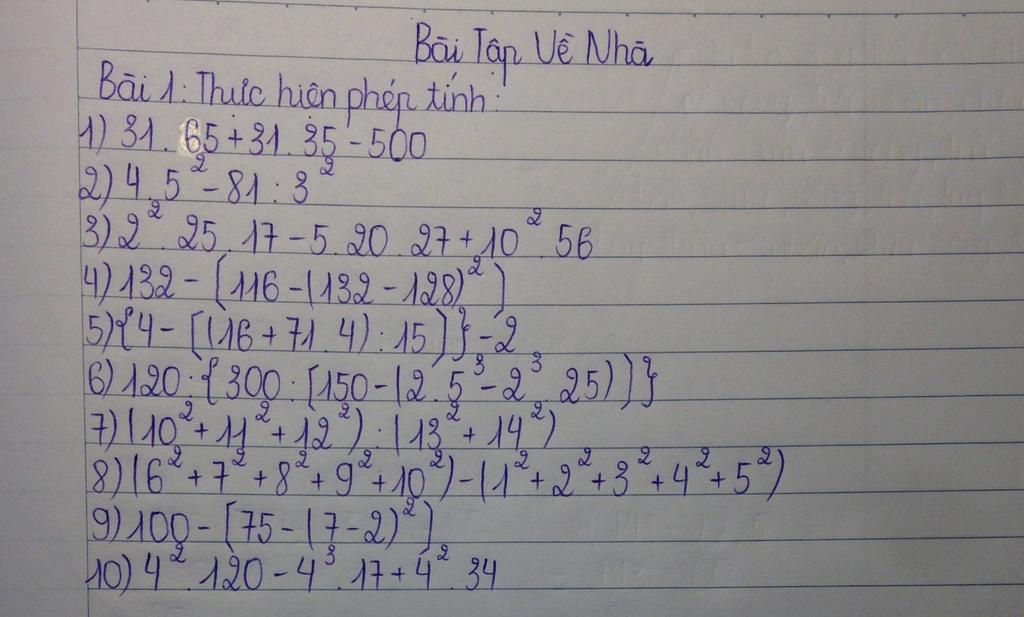 Bài Tập Về Nhà
Bài 1: Thực hiện phép tính:
1) 31 . 65 + 31 . 35 - 500
2) 4 . 5² - 81 : 3²
3) 2² . 25 . 17 - 5 . 20 . 27 + 10² . 56
4) 132 - [116 - (132 - 128)²]
5) {4 - [(16 + 71 . 4) : 15]} - 2
6) 120 : {300 : [150 - (2 . 5³ - 2³ . 25)]}
7) (10² + 11² + 12²) : (13² + 14²)
8) (6² + 7² + 8² + 9² + 10²) - (1² + 2² + 3² + 4² + 5²)
9) 100 - [75 - (7 - 2)²]
10) 4² . 120 - 4³ . 17 + 4² . 34